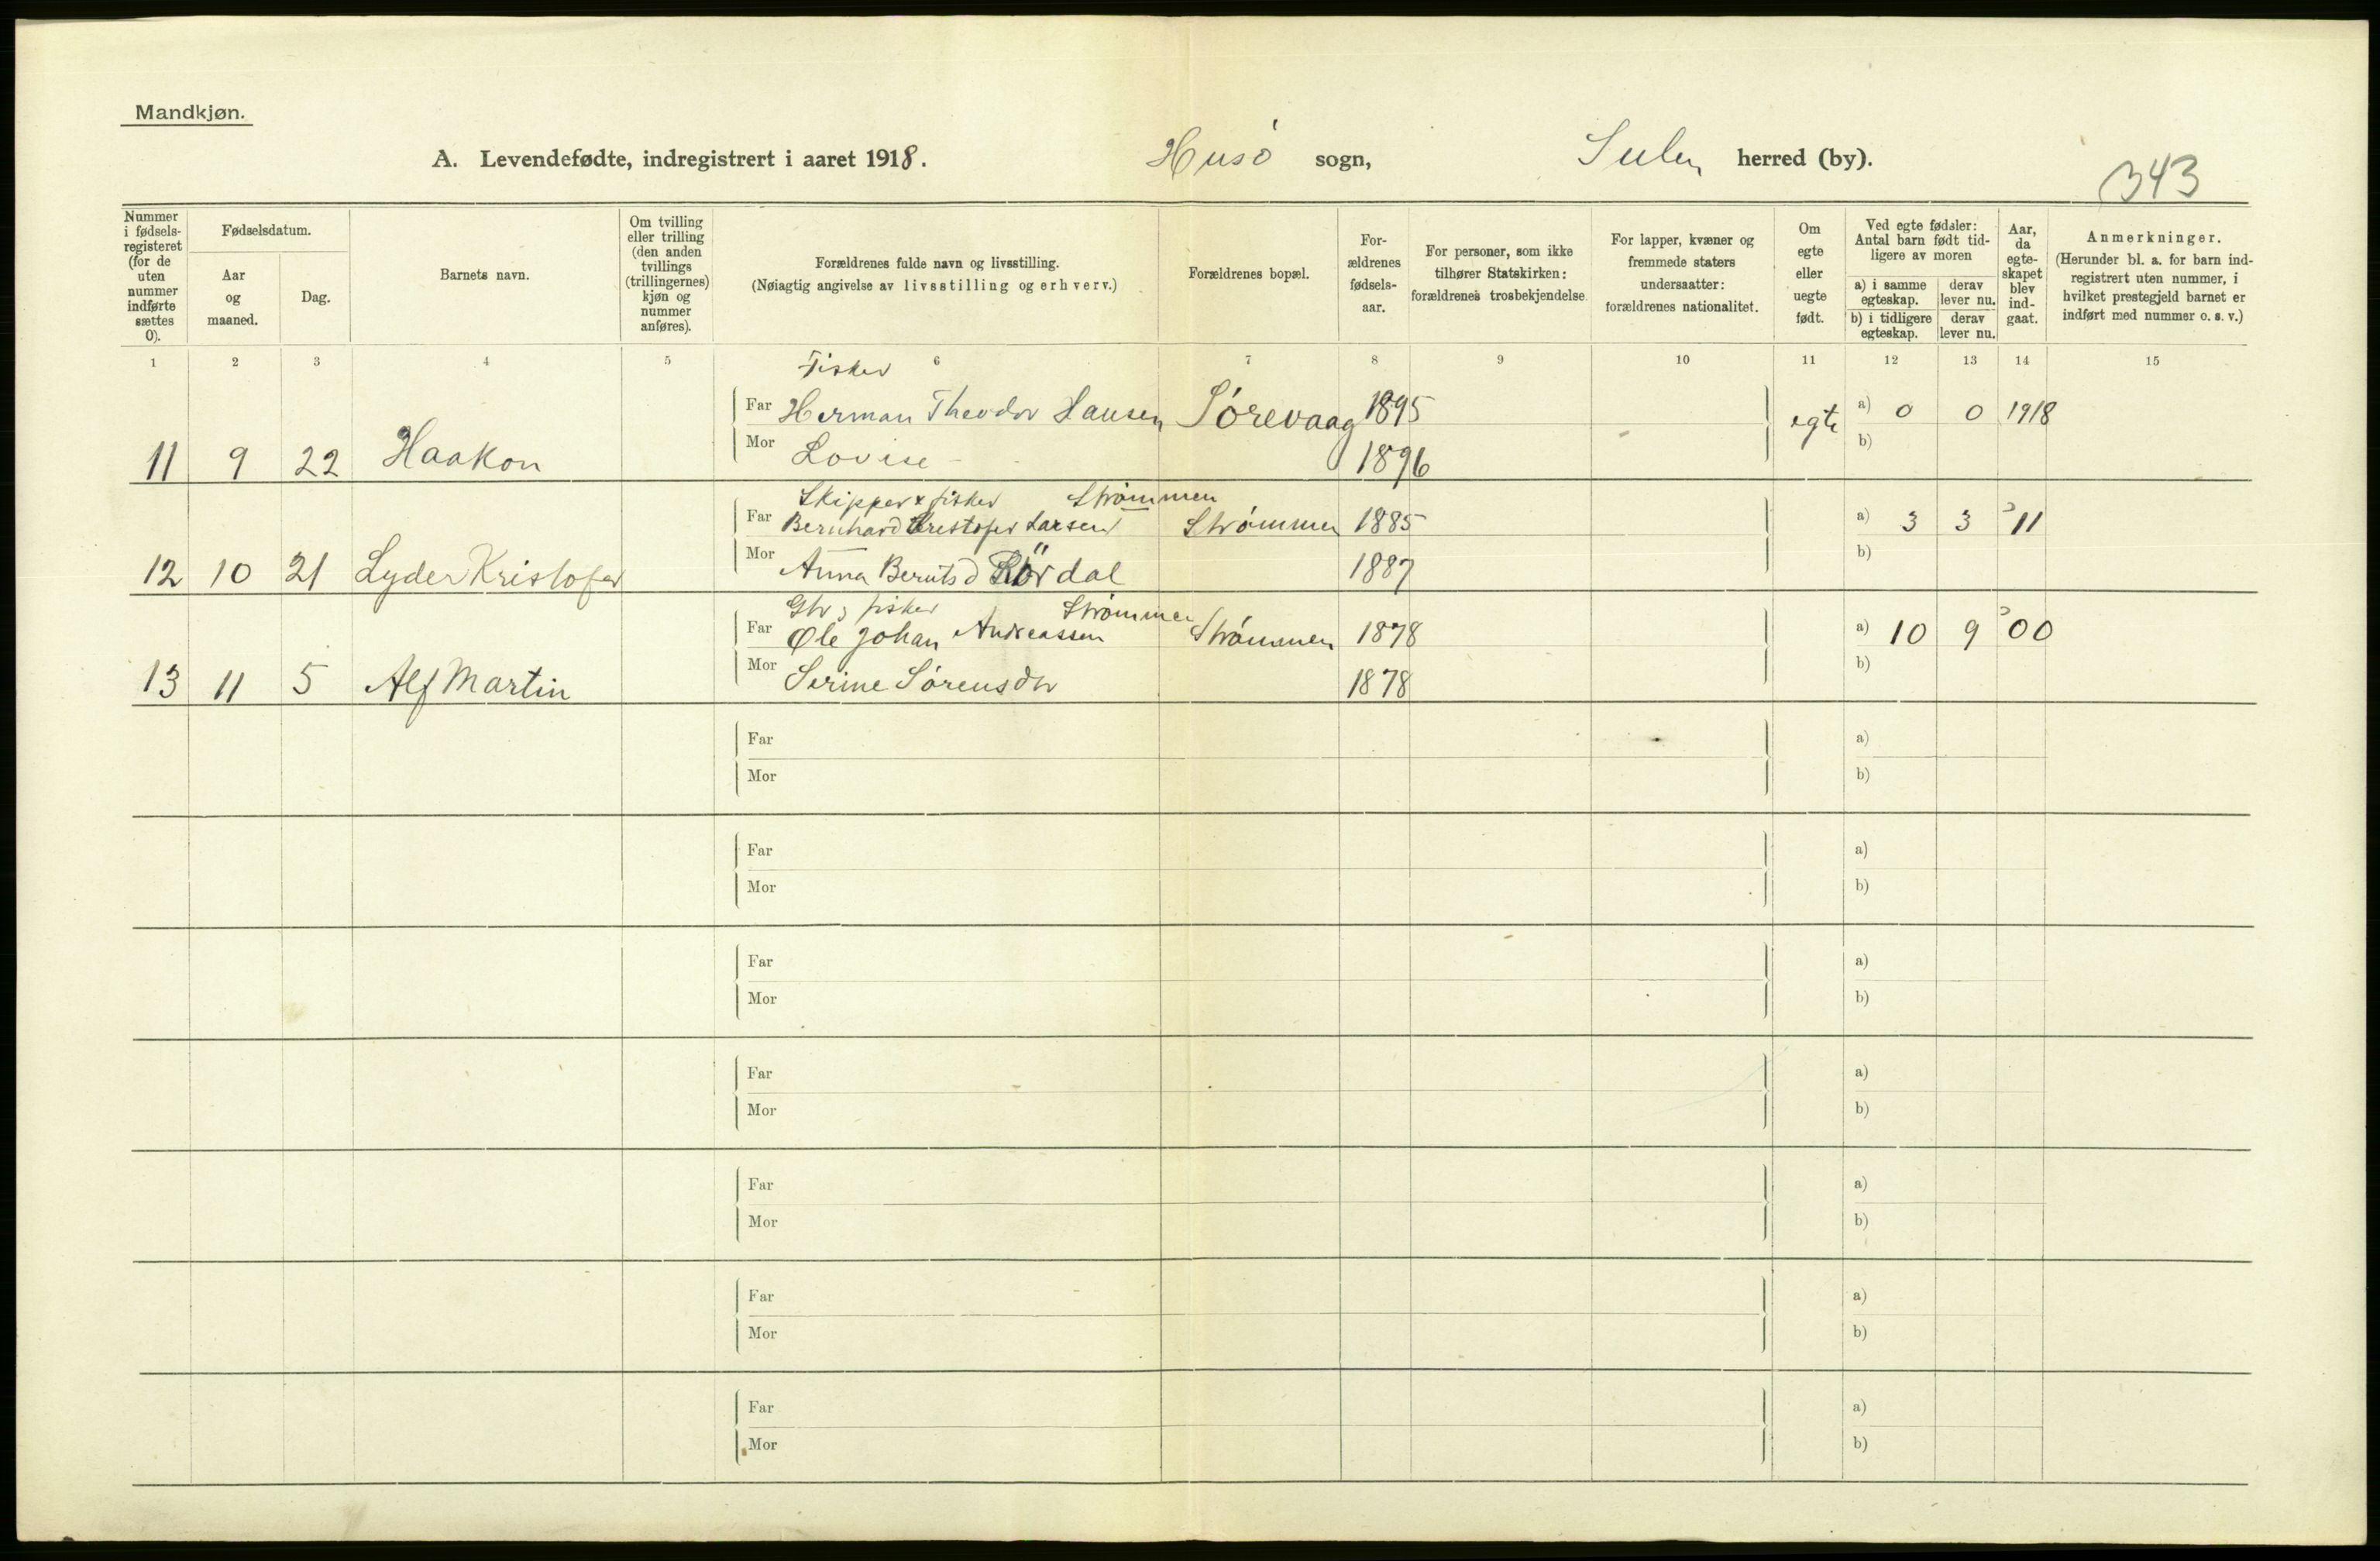 Mandkjøn.
A. Levendefødte, indregistrert i aaret 1918. Husø sogn, Sulen herred (by).
343
Nummer i fødselsregisteret (for de uten nummer indførte sættes 0).
Fødselsdatum.
Aar og maaned.
Dag.
Barnets navn.
Om tvilling eller trilling (den anden tvillings (trillingernes) kjøn og nummer anføres).
Forældrenes fulde navn og livsstilling.
(Nøiagtig angivelse av livsstilling og erhverv.)
Forældrenes bopæl.
Forældrenes fødselsaar.
For personer, som ikke tilhører Statskirken: forældrenes trosbekjendelse
For lapper, kvæner og fremmede staters undersaatter: forældrenes nationalitet.
Om egte eller uegte født.
Ved egte fødsler: Antal barn født tidligere av moren
a) i samme egteskap.
derav lever nu.
b) i tidligere egteskap.
derav lever nu.
Aar, da egteskapet blev indgaat.
Anmerkninger.
(Herunder bl. a. for barn indregistrert uten nummer, i hvilket prestegjeld barnet er indført med nummer o. s. v.)
1 2 3 4 5 6 7 8 9 10 11 12 13 14 15
Fisker
Far Herman Theodor Hansen Sørevaag 1895 egte a) 0 0 1918
11 9 22 Haakon Mor Lovise 1896 b)
Skipper & fisker Strømmen
Far Bernhard Krestofer Larsen Strømmen 1885 a) 3 3 " 11
12 10 21 Lyder Kristofer Mor Anna Berntsd Rørdal 1887 b)
Gbr, fisker Strømmen
Far Ole Johan Andreassen Strømmen 1878 a) 10 9 " 00
13 11 5 Alf Martin Mor Serine Sørensdtr 1878 b)
Far a)
Mor b)
Far a)
Mor b)
Far a)
Mor b)
Far a)
Mor b)
Far a)
Mor b)
Far a)
Mor b)
Far a)
Mor b)